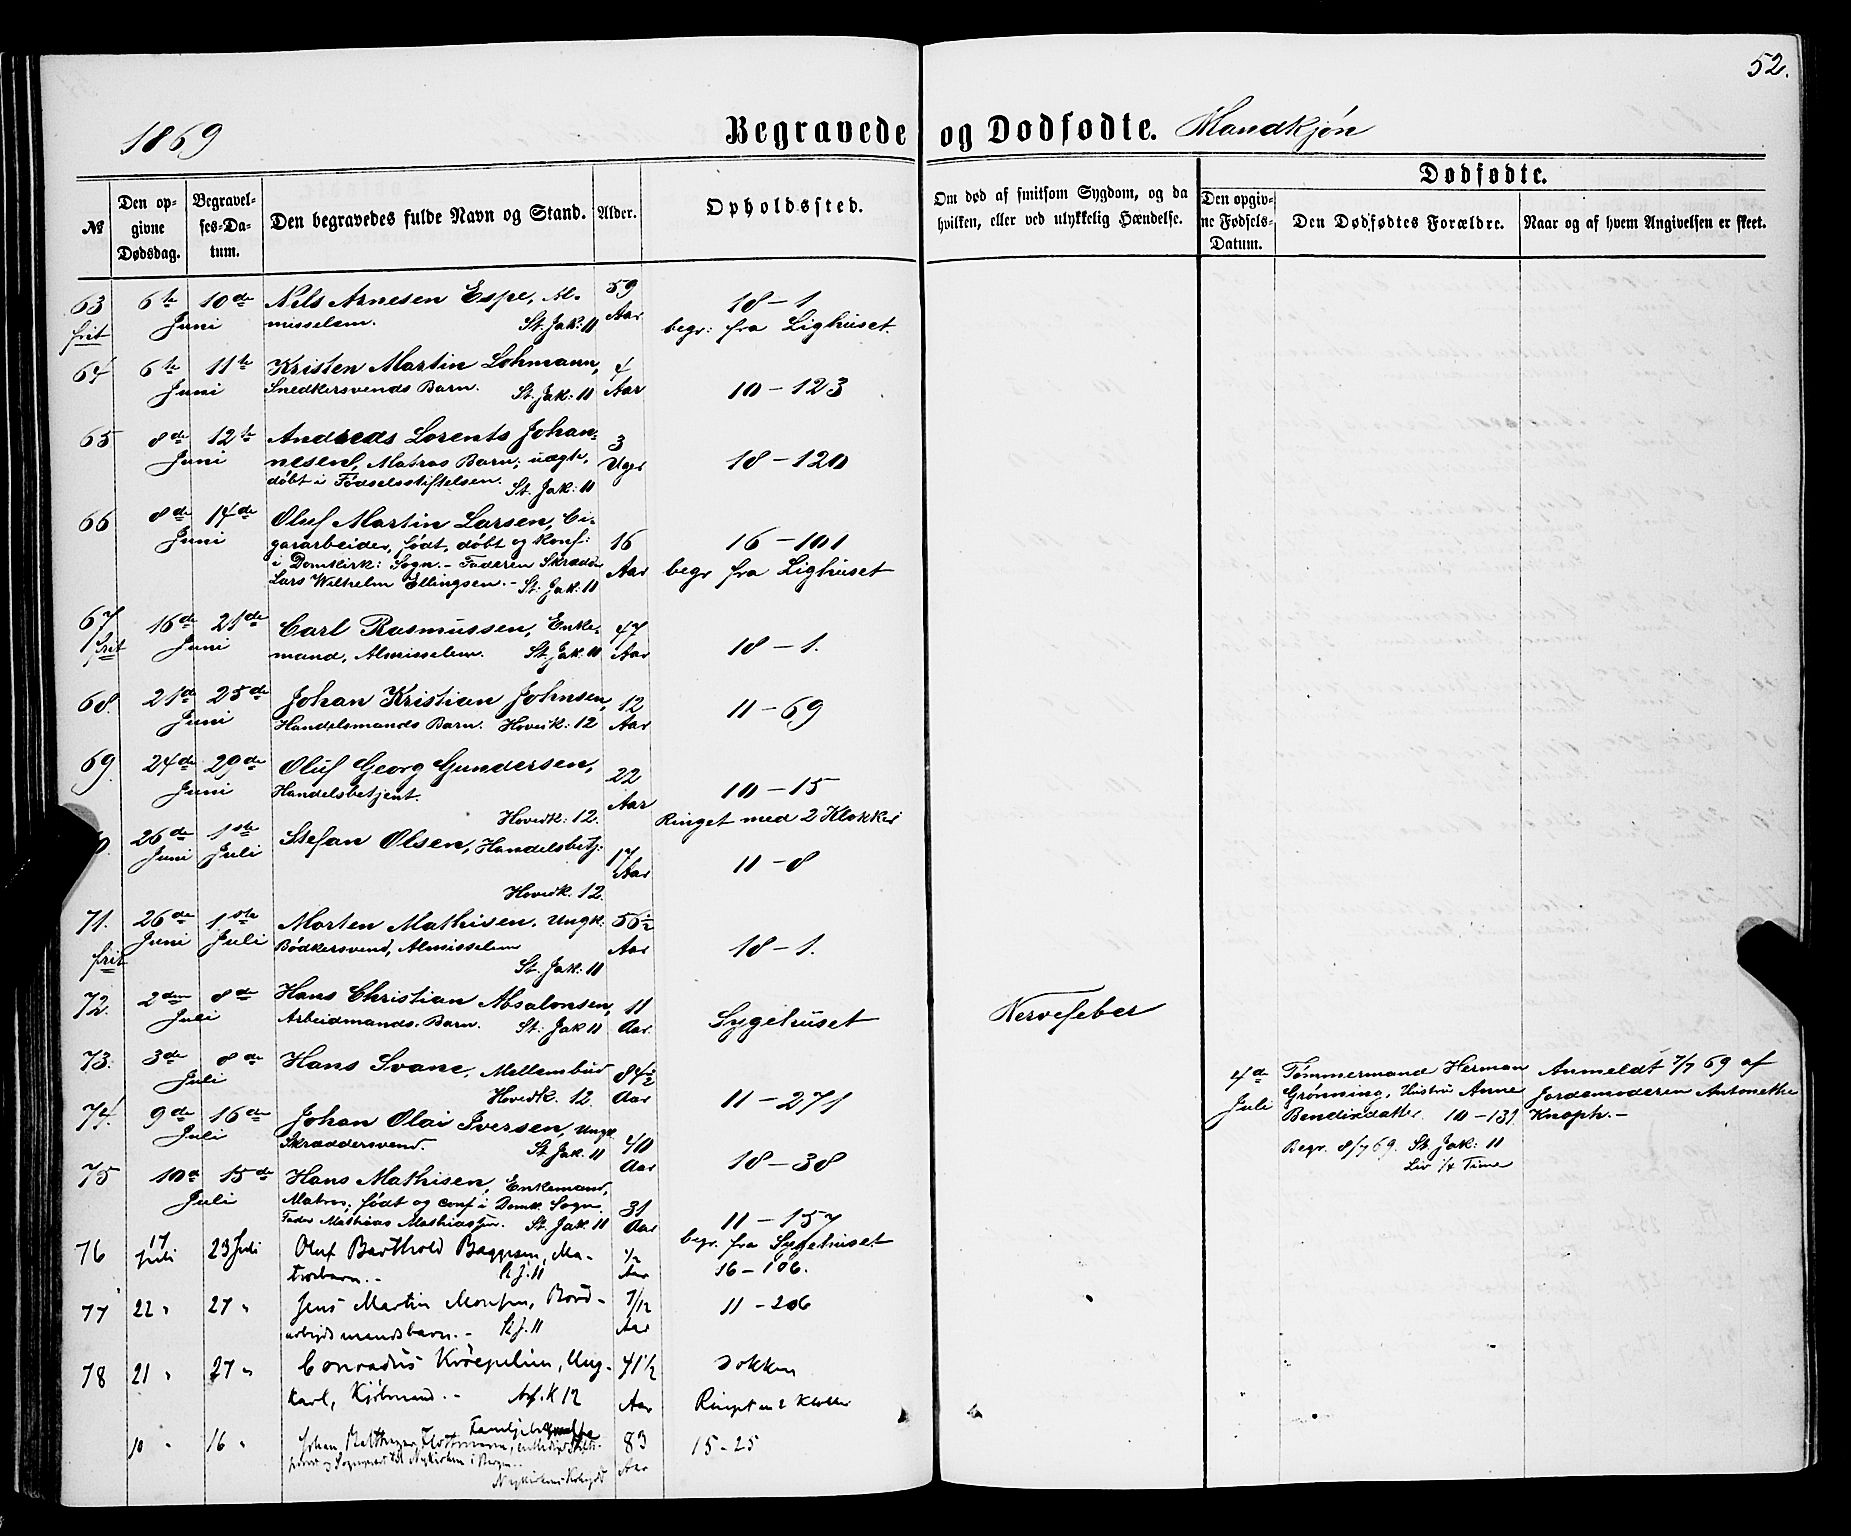 52.
1869 Begravede og Dødfødte. Mandkjøn
№ Den opgivne Dødsdag. Begravelses-Datum. Den begravedes fulde Navn og Stand. Alder. Opholdssted. Om død af smitsom Sygdom, og da hvilken, eller ved ulykkelig Hændelse. Dødfødte. Den opgivne Fødsels-Datum. Den Dødfødtes Forældre. Naar og af hvem Angivelsen er skeet.
63 6te 10de Nils Arnesen Espe, Al- 59 18-1
frit Juni misselem. St. Jak: 11 Aar begr: fra Lighuset.
64 6te 11te Kristen Martin Lohmann, 4
Juni Snedkersvends Barn. St. Jak: 11 Aar 10-123
65 8de 12te Andreas Lorents Johan- 3
Juni nesen, Matros Barn, uægte, Uger 18-120
døbt i Fødselsstiftelsen. St. Jak: 11
66 8de 14de Oluf Martin Larsen, Ci-
Juni gararbeider, født, døbt og konf: 16 16-101
i Domkirk: Sogn.- Faderen Skrædder Aar begr fra Lighuset
Lars Wilhelm Ellingsen.- St. Jak: 11
67 16de 21de Carl Rasmussen, Enke- 47
frit Juni mand, Almisselem. St. Jak. 11 Aar 18-1.
68. 21de 25de Johan Kristian Johnsen, 12
Juni Handelsmands Barn. Hovedk: 12 Aar 11-69
69. 24de 29de Oluf Georg Gundersen, 22
Juni Handelsbetjent. Aar 10-15
Hovedk: 12. Ringet med 2 Klokker
0. 26de 1ste Stefan Olsen, Handelsbetj: 17
Juni Juli Aar 11-8
Hovedk. 12.
71. 26de 1ste Morten Mathisen. Ungk. 56½
frit Juni Juli Bødkersvend, Almisselem Aar 18-1.
St. Jak. 11
72. 2den 8de Hans Christian Absalonsen, 11
Juli Arbeidmands. Barn. St: Jak 11 Aar Sygehuset Nervefeber
73. 3de 8de Hans Svane, Mellembud 84½
Juli Hovedk. 12. Aar 11-271
4de Tømmermand Herman Anmeldt 7/7 69 af
Juli Grønning, Hustru Anne Jordemoderen Antonethe
Bendixdatter. 10-131. Knoph.-
Begr. 8/7 69. St. Jak: 11
Liv ¼ Time
74. 9de 16de Johan Olai Iversen, Ungk.
Juli Skræddersvend. St. Jak. 11 40 Aar 18-38
75 10de 15de Hans Mathisen, Enkemand,
Juli Matros; født og conf i Domk. Sogn. 31
Fader Mathias Mathiassen. St. Jak. 11 Aar 11-157
begr. fra Sygehuset
76 17 Juli 23 Juli Oluf Barthold Baggesen, Ma- ½
trosbarn.- St J. 11 Aar 16-106.
77 22 " 27 " Jens Martin Monsen, Bord- 7/12 11-206
arbeidsmandsbarn.- St J. 11 Aar
78 21 " 27 " Conradus Kröepelien, Ung- 41½ Dokken
karl, Kjøbmand.- Asf. K 12 Aar Ringet m 2 Klokker
Familjebegravelse
10 " 16 " Johan 83 15-25
og Sognepræst til Nykirken i Bergen.- Aar
Nykirkens